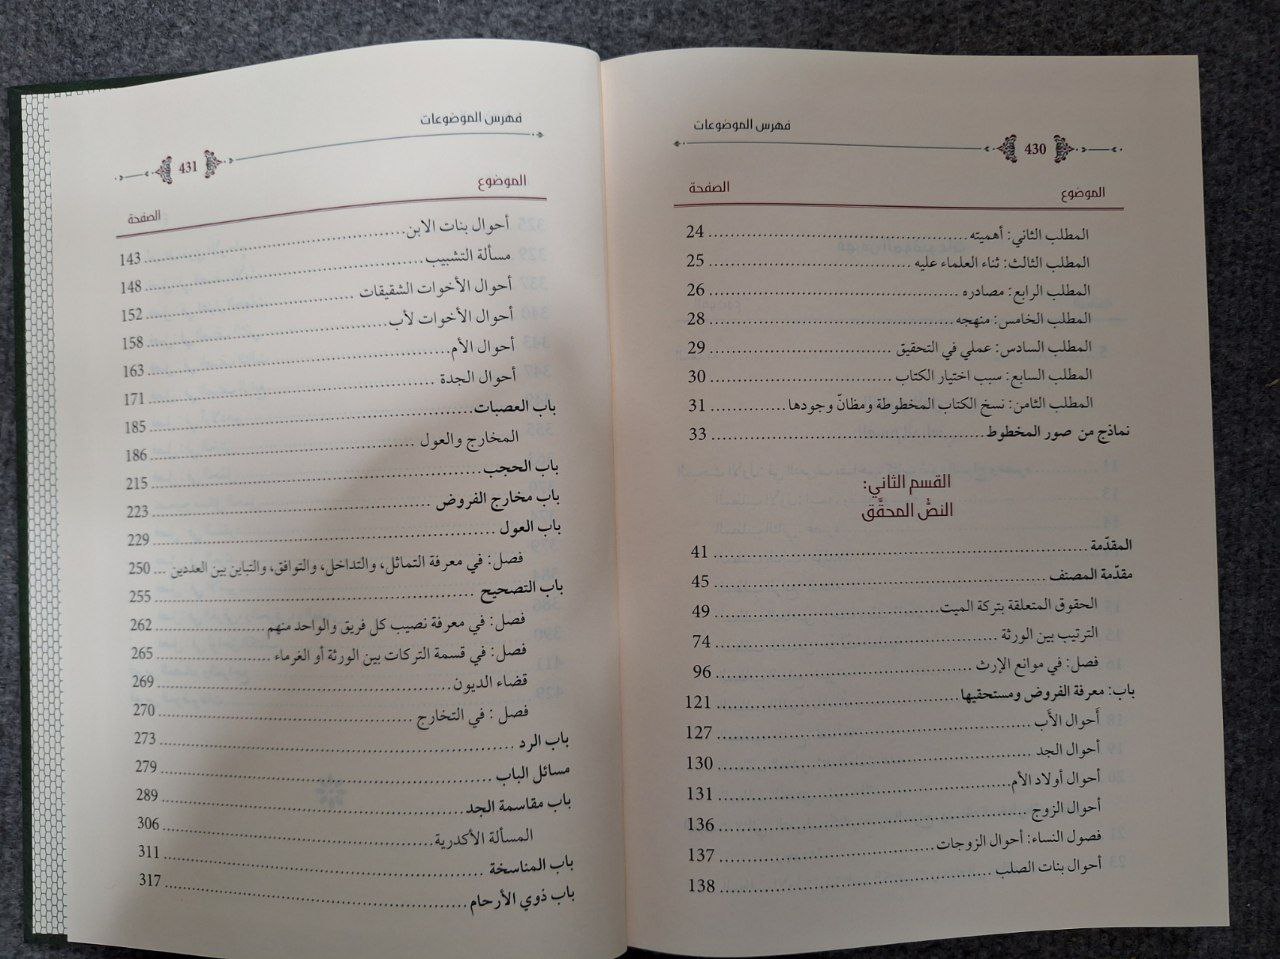 فهرس الموضوعات
430
الموضوع الصفحة
المطلب الثاني: أهميته 24
المطلب الثالث: ثناء العلماء عليه 25
المطلب الرابع: مصادره 26
المطلب الخامس: منهجه 28
المطلب السادس: عملي في التحقيق 29
المطلب السابع: سبب اختيار الكتاب 30
المطلب الثامن: نسخ الكتاب المخطوطة ومظانّ وجودها 31
نماذج من صور المخطوط 33
القسم الثاني:
النصُّ المحقَّق
المقدّمة 41
مقدّمة المصنف 45
الحقوق المتعلقة بتركة الميت 49
الترتيب بين الورثة 74
فصل: في موانع الإرث 96
باب: معرفة الفروض ومستحقيها 121
أحوال الأب 127
أحوال الجد 130
أحوال أولاد الأم 131
أحوال الزوج 136
فصول النساء: أحوال الزوجات 137
أحوال بنات الصلب 138
فهرس الموضوعات
431
الموضوع الصفحة
أحوال بنات الابن 143
مسألة التشبيب 148
أحوال الأخوات الشقيقات 152
أحوال الأخوات لأب 158
أحوال الأم 163
أحوال الجدة 171
باب العصبات 185
المخارج والعول 186
باب الحجب 215
باب مخارج الفروض 223
باب العول 229
فصل: في معرفة التماثل، والتداخل، والتوافق، والتباين بين العددين 250
باب التصحيح 255
فصل: في معرفة نصيب كل فريق والواحد منهم 262
فصل: في قسمة التركات بين الورثة أو الغرماء 265
قضاء الديون 269
فصل : في التخارج 270
باب الرد 273
مسائل الباب 279
باب مقاسمة الجد 289
المسألة الأكدرية 306
باب المناسخة 311
باب ذوي الأرحام 317